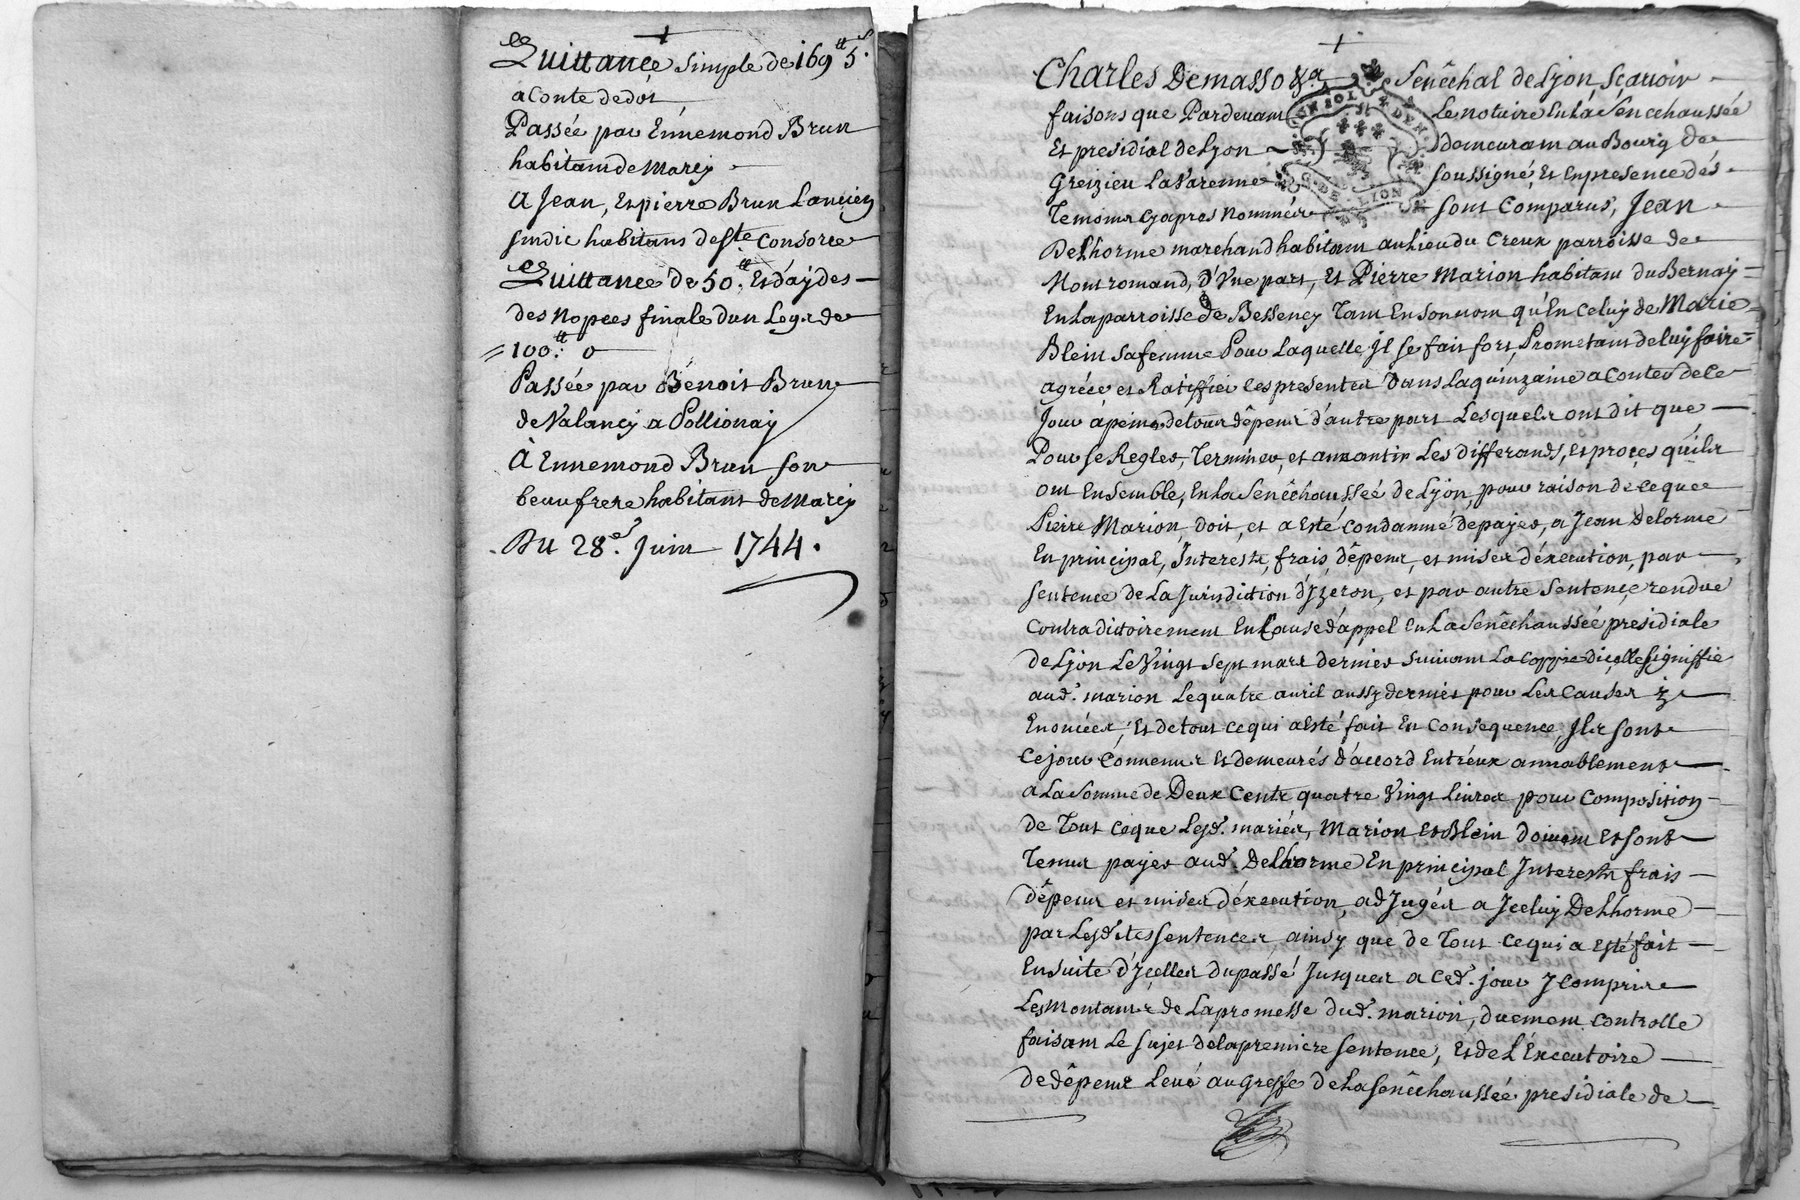 Quittance simple de 169 tt 5 s.
a conte de dot
Passée par Ennemond Brun
habitant de Marcy
a Jean, et pierre Brun L'ancien
sindic habitans de Ste. Consorce
Quittance de 50 tt. Et d'aydes
des nopces finale d'un Legs de
100 tt. 0
Passée par Benoit Brun
de Valancy a Pollionay
A Ennemond Brun son
beaufrere habitant de Marcy
Du 28e. Juin 1744.
Charles Demasso &a. Senêchal de Lyon, scavoir
faisons que Pardevant Le notaire En La Senechaussée
Et presidial de Lyon demeurant au Bourg de
Greizieu La Varenne soussigné, Et En presence des
Temoins cy apres nommés sont Comparus, Jean
Delhorme marchand habitant au Lieu du Creux parroisse de
Montromand, D'Une part, Et Pierre Marion habitant du Bernay
En La parroisse de Bessenay Tant En son nom qu'En Celuy de Marie
Blein sa femme Pour Laquelle Il se fait fort, Prometant de luy faire
agréer et Ratiffier Les presentes Dans La quinzaine a Conter de Ce
Jour à peine de tous dêpens d'autre part Lesquels ont dit que
Pour se Regler, Terminer, et aneantir Les differands, et procès qu'ils
ont Ensemble, En La Senêchaussée de Lyon, pour raison de ce que
Pierre Marion, doit, et a Esté Condamné de payer, a Jean Delorme
En principal, Interests, frais, dêpens, et mises d'éxecution, par
sentence de La Jurisdiction d'Izeron, et par autre sentence rendue
Contradictoirement En Cause d'appel En La Senêchaussée presidiale
de Lyon Le Vingt sept mars dernier suivant La Coppie d'icelle signiffié
aud. marion Le quatre avril aussy dernier pour Les Causes y
Enoncées, Et de tout ce qui a Esté fait En Consequence, Ils sont
Ce jour Convenus Et demeurés d'accord Entr'eux amiablement
a La Somme de Deux Cents quatre Vingt Livres pour Composition
de Tout Ce que Lesd. mariés, Marion Et Blein doivent Et sont
Tenus payer aud. Delhorme En principal Interests frais
dêpens et mises d'éxecution, adJugés a Jceluy Delhorme
par Lesd. Ites sentences, ainsy que de Tout Ce qui a Esté fait
En suite d'Jcelles du passé Jusques a Ced. jour Y Compris
Les montants de La promesse dud. marion, duement Controllé
faisant Le sujet de La premiere sentence, Et de L'Executoire
de dêpens Levé au Greffe de La Senêchaussée presidiale de